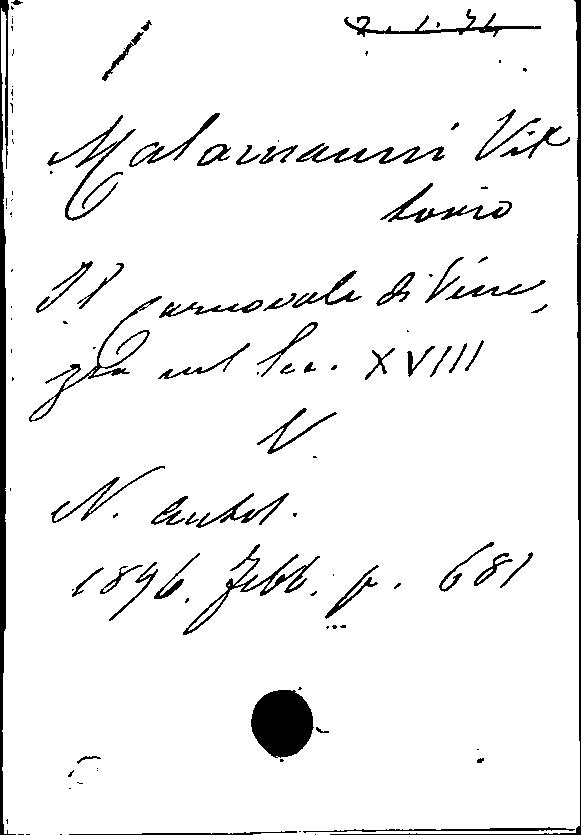 7.1.74
Malamanni Vit
torio
Il Carnovale di Vene,
zia nel Sec. XVIII
V.
N. Antol.
1896. Febb. p. 681